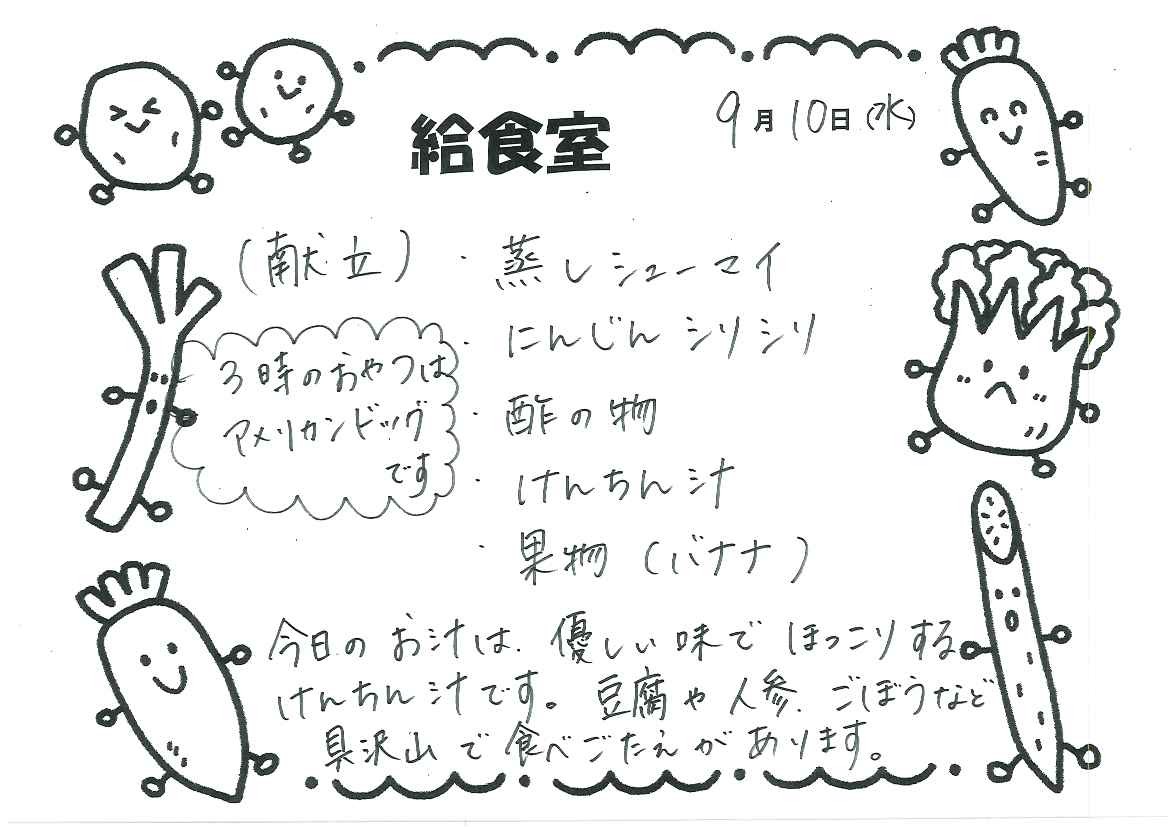 給食室
9月10日(水)
(献立)・蒸しシューマイ
・にんじんシリシリ
・酢の物
・けんちん汁
・果物(バナナ)
3時のおやつは
アメリカンドッグ
です
今日のお汁は、優しい味でほっこりする
けんちん汁です。豆腐や人参、ごぼうなど
具沢山で食べごたえがあります。